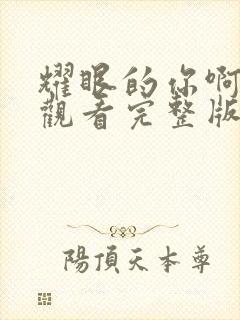 耀眼的你啊
觀看完整版
陽頂天本尊